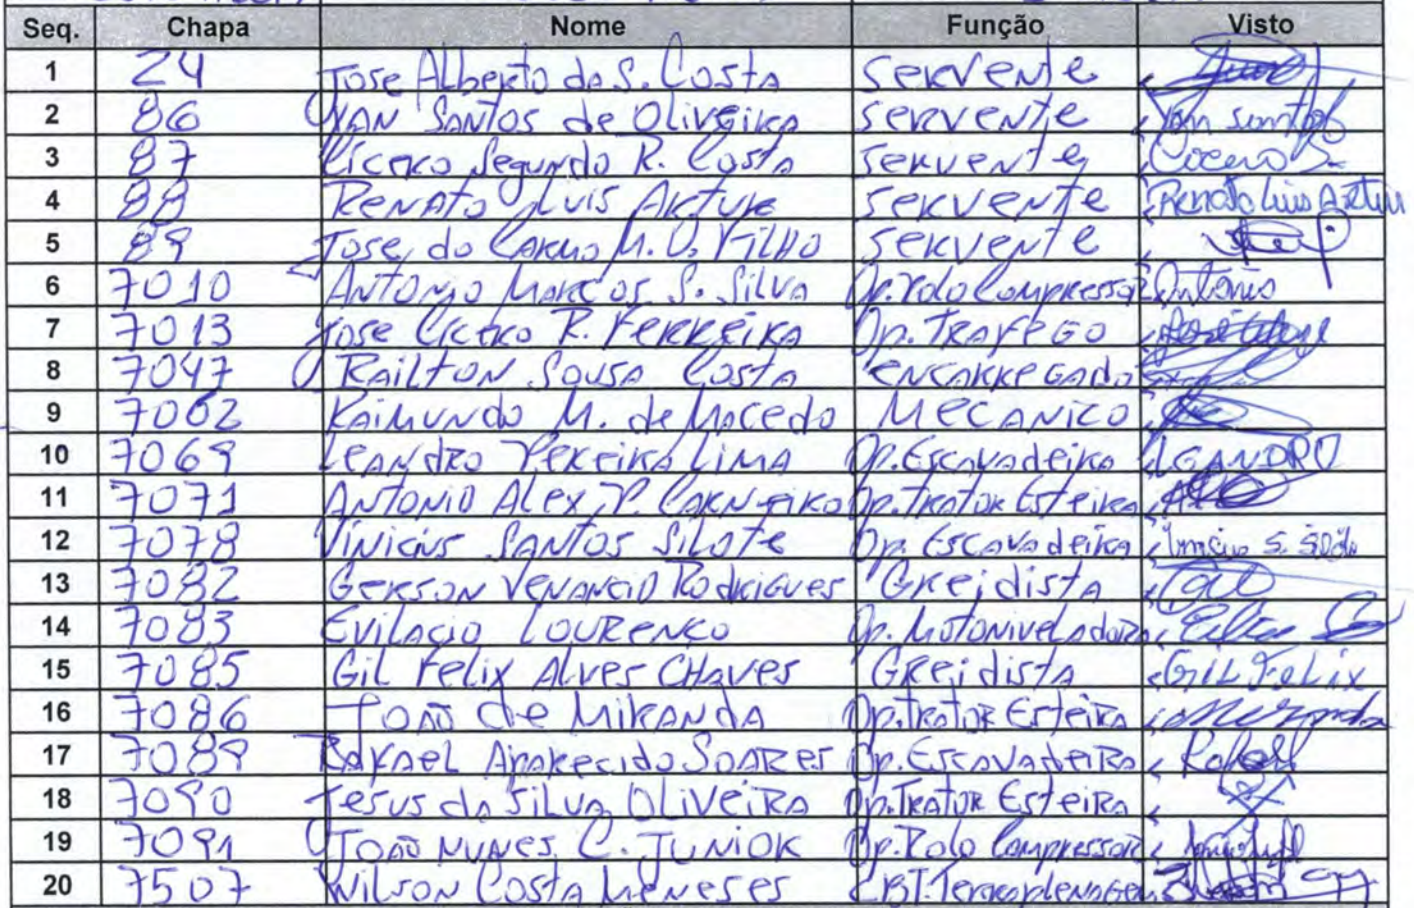 Seq. Chapa Nome Função Visto
1 24 Jose Alberto da S. Costa Servente
2 86 YAN Santos de Oliveira Servente Yan santos
3 87 Cicero Segundo R. Costa Servente Cicero S.
4 88 Renato Luis Artur Servente Renato Luis Artur
5 89 Jose do Carmo M. O. Filho Servente
6 7010 Antonio Marcos S. Silva Op. Rolo Compressor Antonio
7 7013 Jose Cicero R. Ferreira Op. Trafego
8 7047 Railton Sousa Costa encarregado
9 7062 Raimundo M. de Macedo Mecanico
10 7069 Leandro Pereira Lima Op. Escavadeira LEANDRO
11 7071 Antonio Alex P. Carneiro Op. Trator Esteira
12 7078 Vinicius Santos Silote Op. Escavadeira
13 7082 Gerson Venancio Rodrigues Greidista
14 7083 Evilacio Lourenço Op. Motoniveladora
15 7085 Gil Felix Alves Chaves Greidista Gil Felix
16 7086 João de Miranda Op. Trator Esteira Miranda
17 7089 Rafael Aparecido Soares Op. Escavadeira Rafael
18 7090 Jesus da Silva Oliveira Op. Trator Esteira
19 7091 João Nunes C. Junior Op. Rolo Compressor
20 7507 Wilson Costa Meneses CBT. Terraplenagem